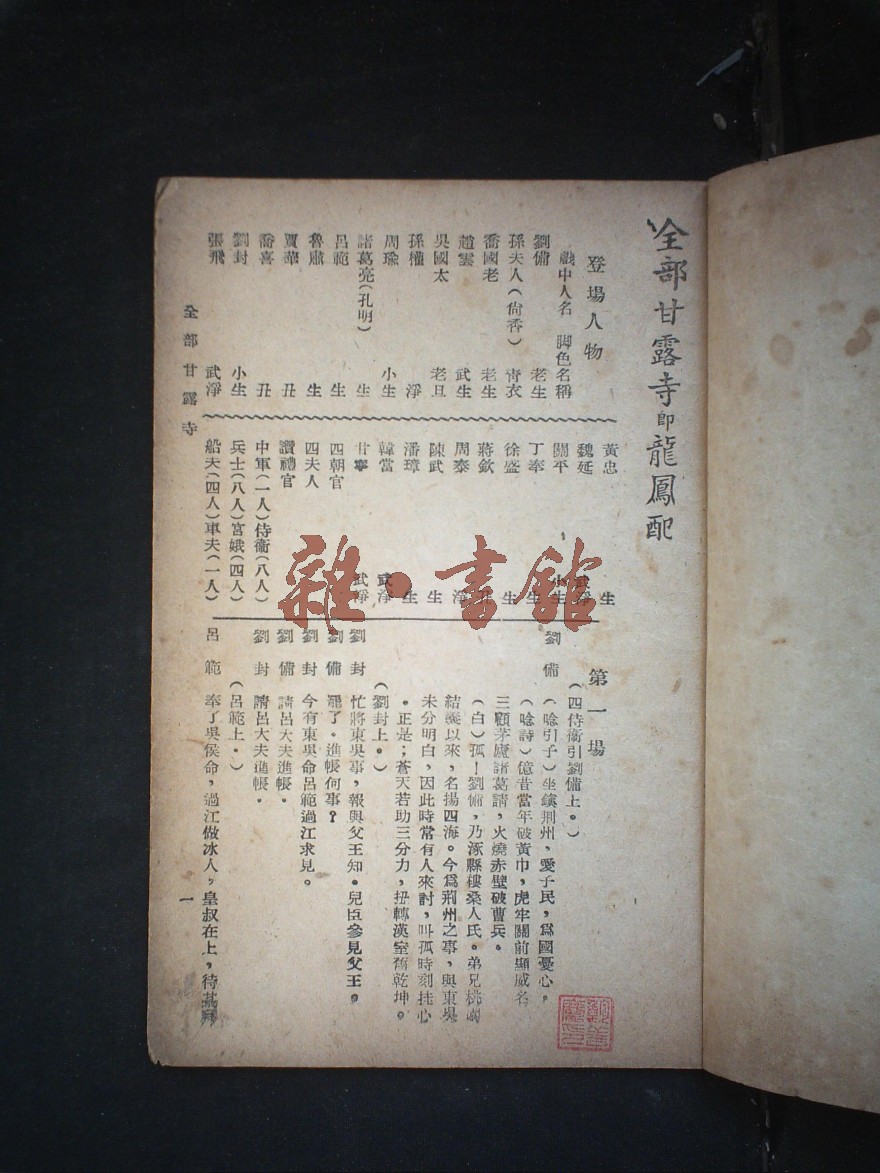 全部甘露寺即龍鳳配
登場人物
戲中人名 脚色名稱
劉備 老生
孫夫人(尙香) 靑衣
喬國老 老生
趙雲 武生
吳國太 老旦
孫權 淨
周瑜 小生
諸葛亮(孔明) 生
呂範 生
魯肅 生
賈華 丑
喬喜 丑
劉封 小生
張飛 武淨
黃忠 生
魏延 武淨
關平 小生
丁奉 生
徐盛 生
蔣欽
周泰 淨
陳武 生
潘璋 生
韓當 武淨
甘寧 武淨
四朝官
四夫人
讚禮官
中軍(一人)侍衞(八人)
兵士(八人)宮娥(四人)
船夫(四人)車夫(一人)
第一場
(四侍衞引劉備上。)
劉備 (唸引子)坐鎭荆州,愛子民,爲國憂心。
(唸詩)億昔當年破黃巾,虎牢關前顯威名
三顧茅廬諸葛請,火燒赤壁破曹兵。
(白)孤!劉備,乃涿縣樓桑人氏。弟兄桃園
結義以來,名揚四海。今爲荆州之事,與東吳
未分明白,因此時常有人來討,叫孤時刻挂心
。正是;蒼天若助三分力,扭轉漢室舊乾坤。
(劉封上。)
劉封 忙將東吳事,報與父王知。兒臣參見父王。
劉備 罷了。進帳何事?
劉封 今有東吳命呂範過江求見。
劉備 請呂大夫進帳。
劉封 請呂大夫進帳。
(呂範上。)
呂範 奉了吳侯命,過江做冰人,皇叔在上,待某
全部甘露寺
一
雜·書館